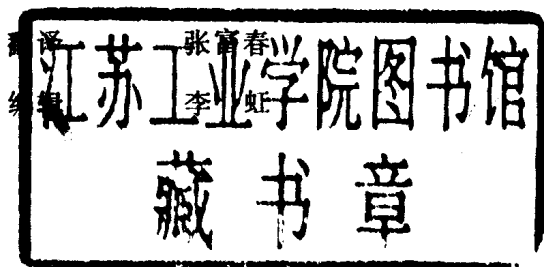 翻译 张富春
编辑 李虹
江苏工业学院图书馆
藏书章